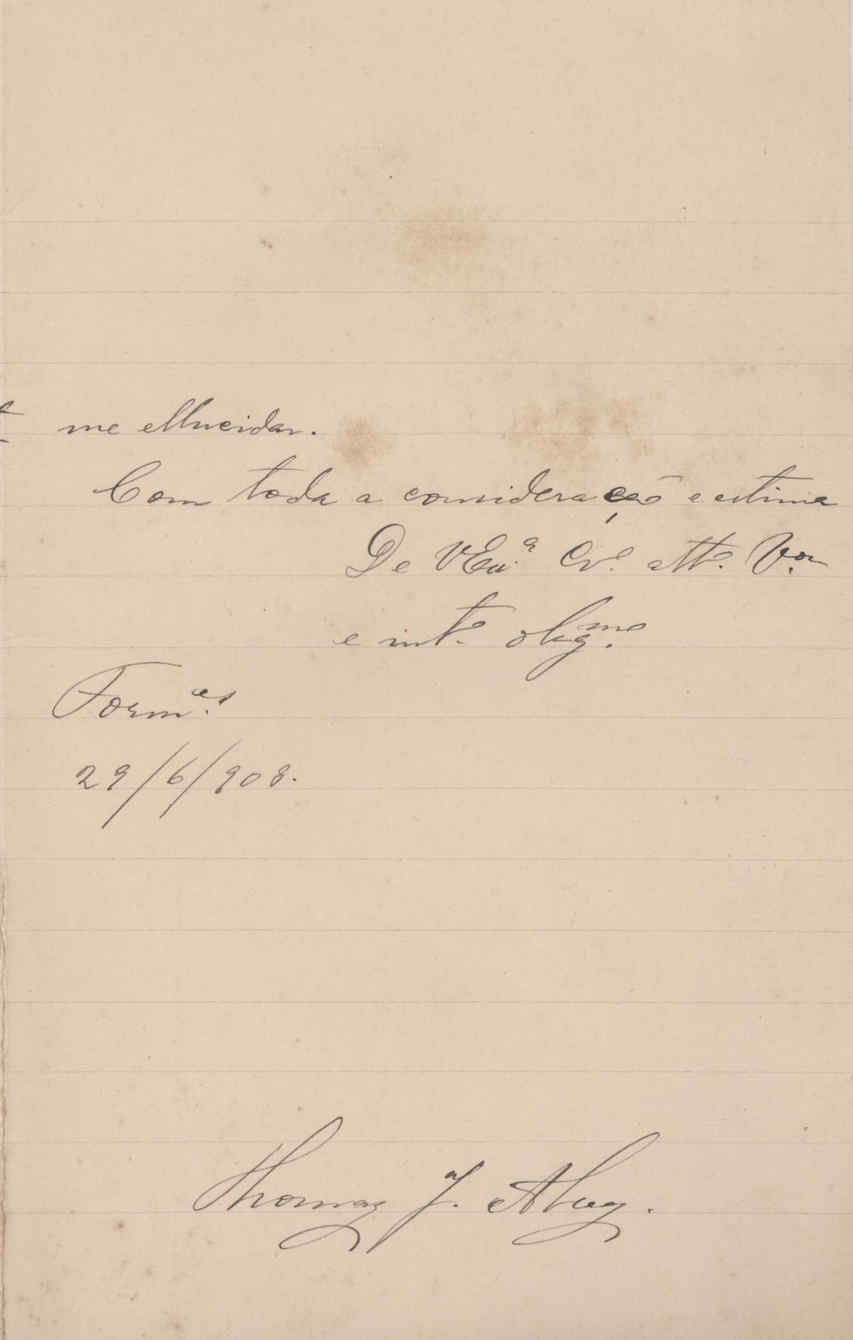 me ellucidar.
Com toda a consideração e estima
De VExª Crº attº Vor
e intº obgmo
Formas
29/6/908.
Thomaz J.